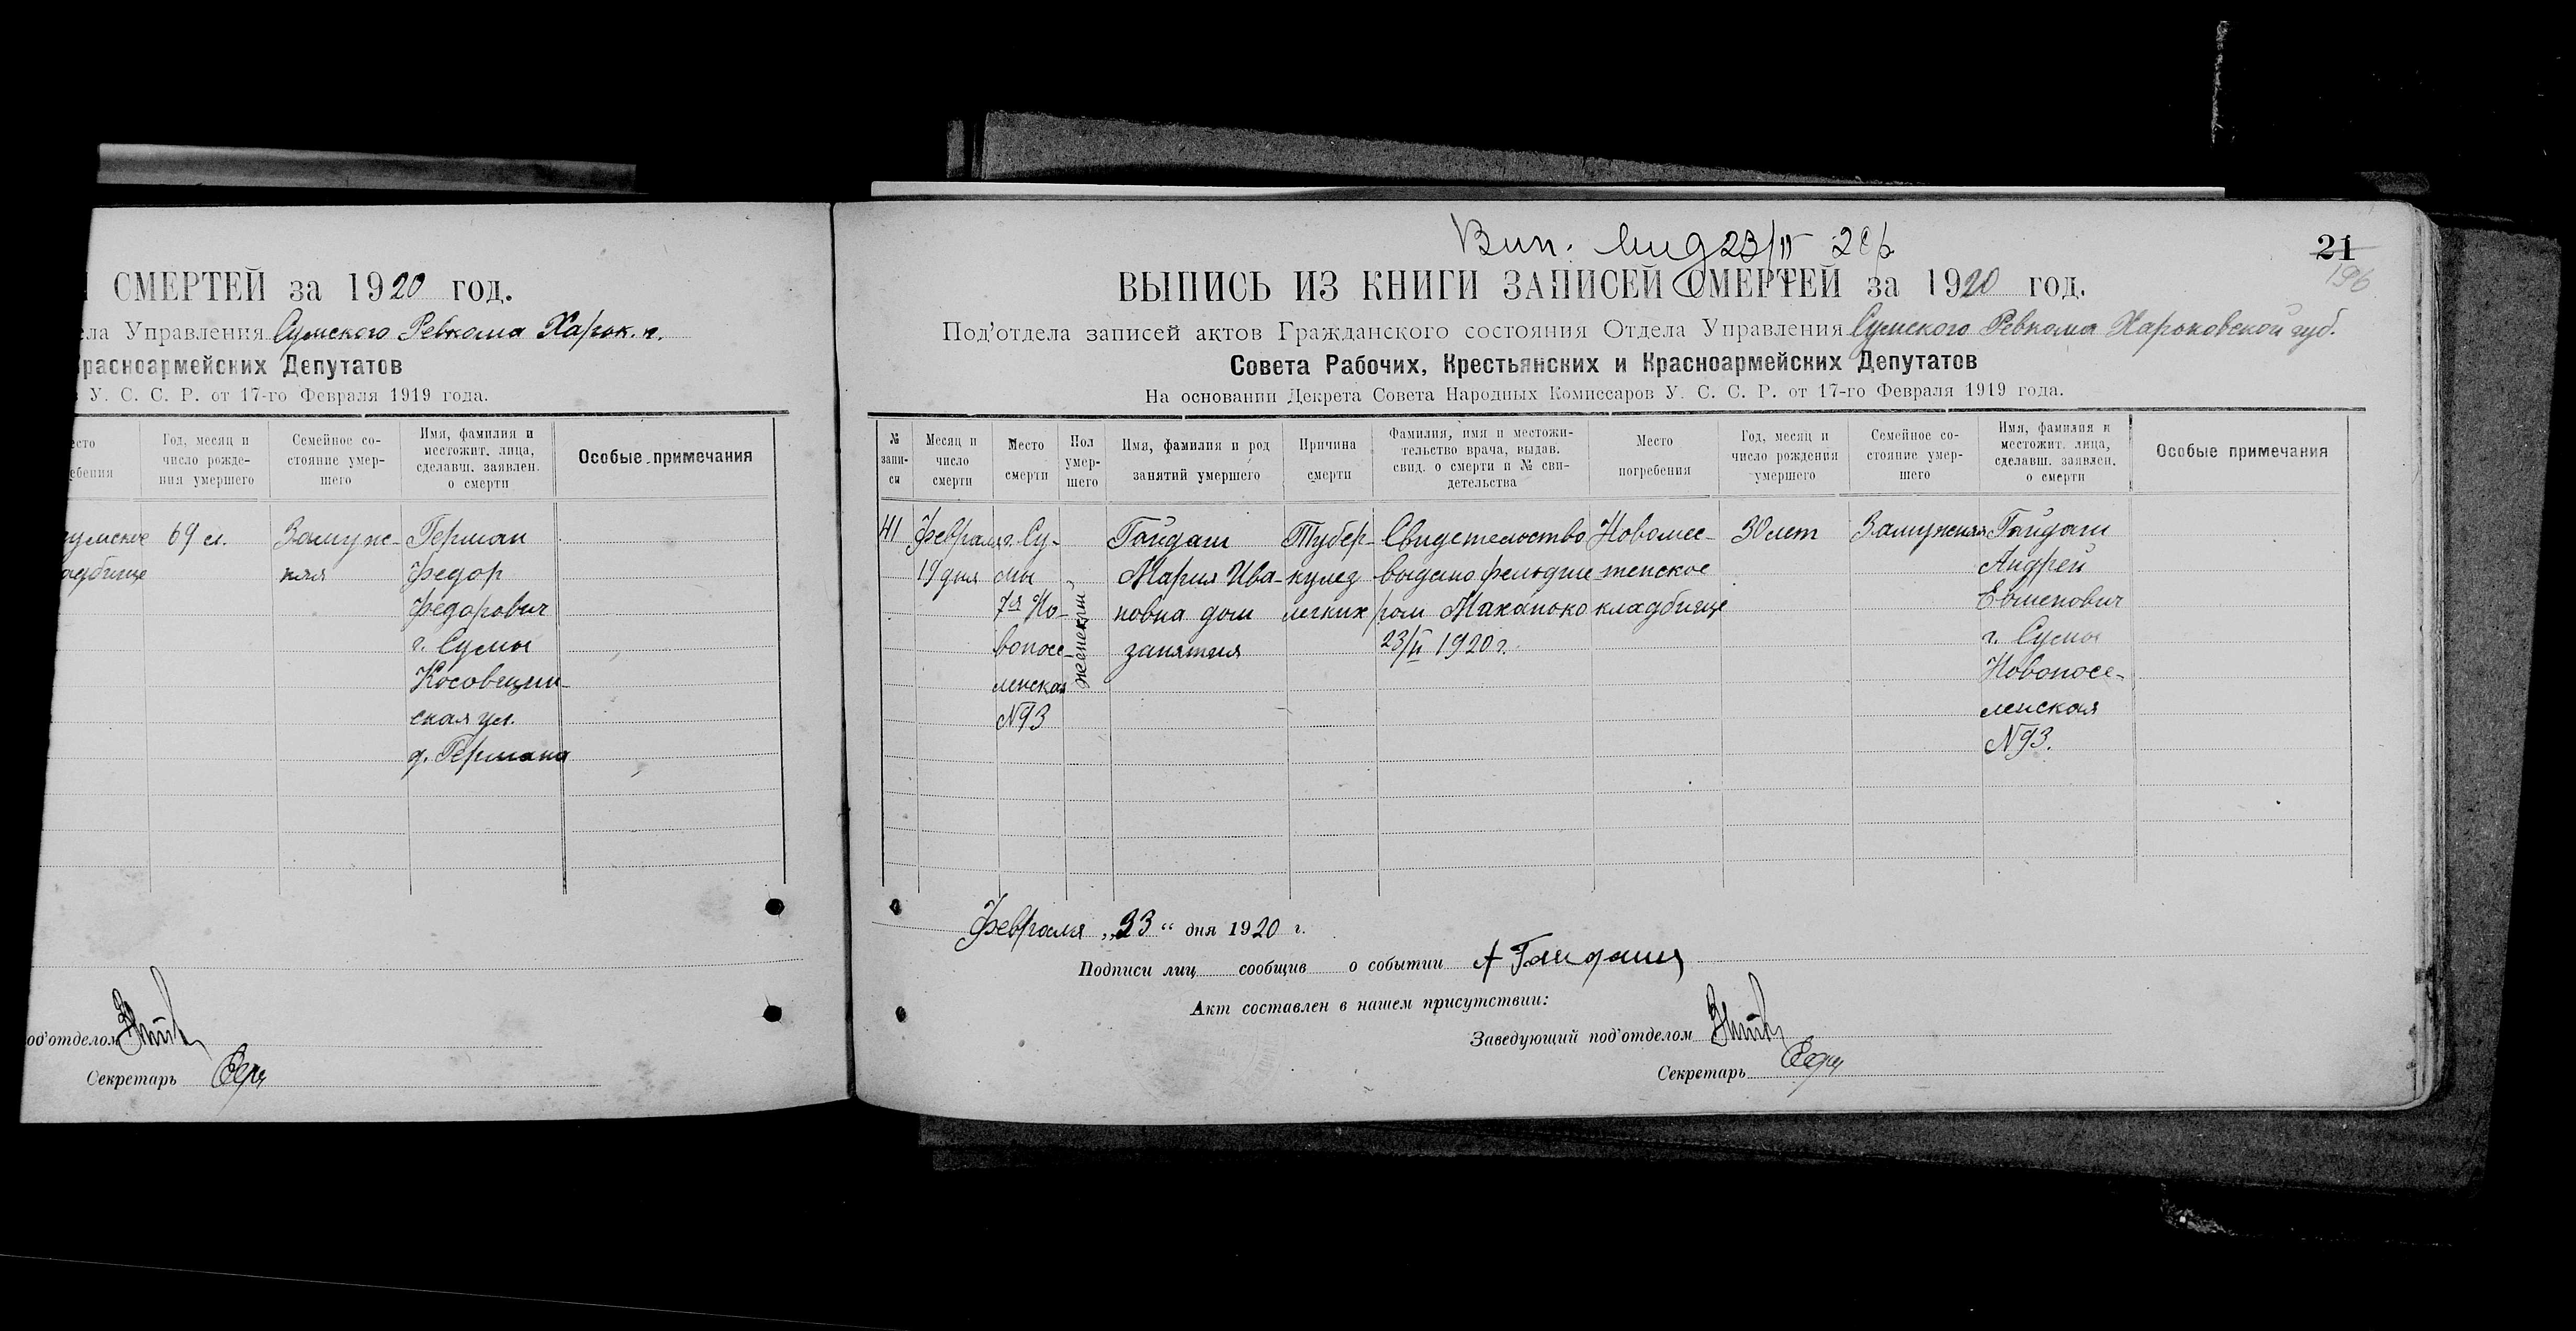 СМЕРТЕЙ за 1920 год.
ела Управления Сумского Ревкома Харьк. г.
расноармейских Депутатов
У. С. С. Р. от 17-го Февраля 1919 года.
есто
ебения
Год, месяц и
число рожде-
ния умершего
Семейное со-
стояние умер-
шего
Имя, фамилия и
местожит. лица,
сделавш. заявлен.
о смерти
Особые примечания
умское
адбище
69 л.
Замуж-
няя
Герман
Федор
Федорович
г. Сумы
Косовщин-
ская ул.
д. Германа
од'отделом
Секретарь
Вип.
21
196
ВЫПИСЬ ИЗ КНИГИ ЗАПИСЕЙ СМЕРТЕЙ за 1920 год.
Под'отдела записей актов Гражданского состояния Отдела Управления Сумского Ревкома Харьковской губ.
Совета Рабочих, Крестьянских и Красноармейских Депутатов
На основании Декрета Совета Народных Комиссаров У. С. С. Р. от 17-го Февраля 1919 года.
№
запи-
си
Месяц и
число
смерти
Место
смерти
Пол
умер-
шего
Имя, фамилия и род
занятий умершего
Причина
смерти
Фамилия, имя и местожи-
тельство врача, выдав.
свид. о смерти и № сви-
детельства
Место
погребения
Год, месяц и
число рождения
умершего
Семейное со-
стояние умер-
шего
Имя, фамилия и
местожит. лица,
сделавш. заявлен.
о смерти
Особые примечания
41
Февраля
19 дня
г. Су-
мы
7я Но-
вопосе-
ленская
№93
женский
Гайдаш
Мария Ива-
новна дом
занятия
Тубер-
кулез
легких
Свидетельство
выдано фельдше-
ром
23/II 1920 г.
Новомес-
тенское
кладбище
30 лет
Замужняя
Гайдаш
Андрей
Евменович
г. Сумы
Новопосе-
ленская
№93.
Февраля „23“ дня 1920 г.
Подписи лиц сообщив о событии А Гайдаш
Акт составлен в нашем присутствии:
Заведующий под'отделом
Секретарь